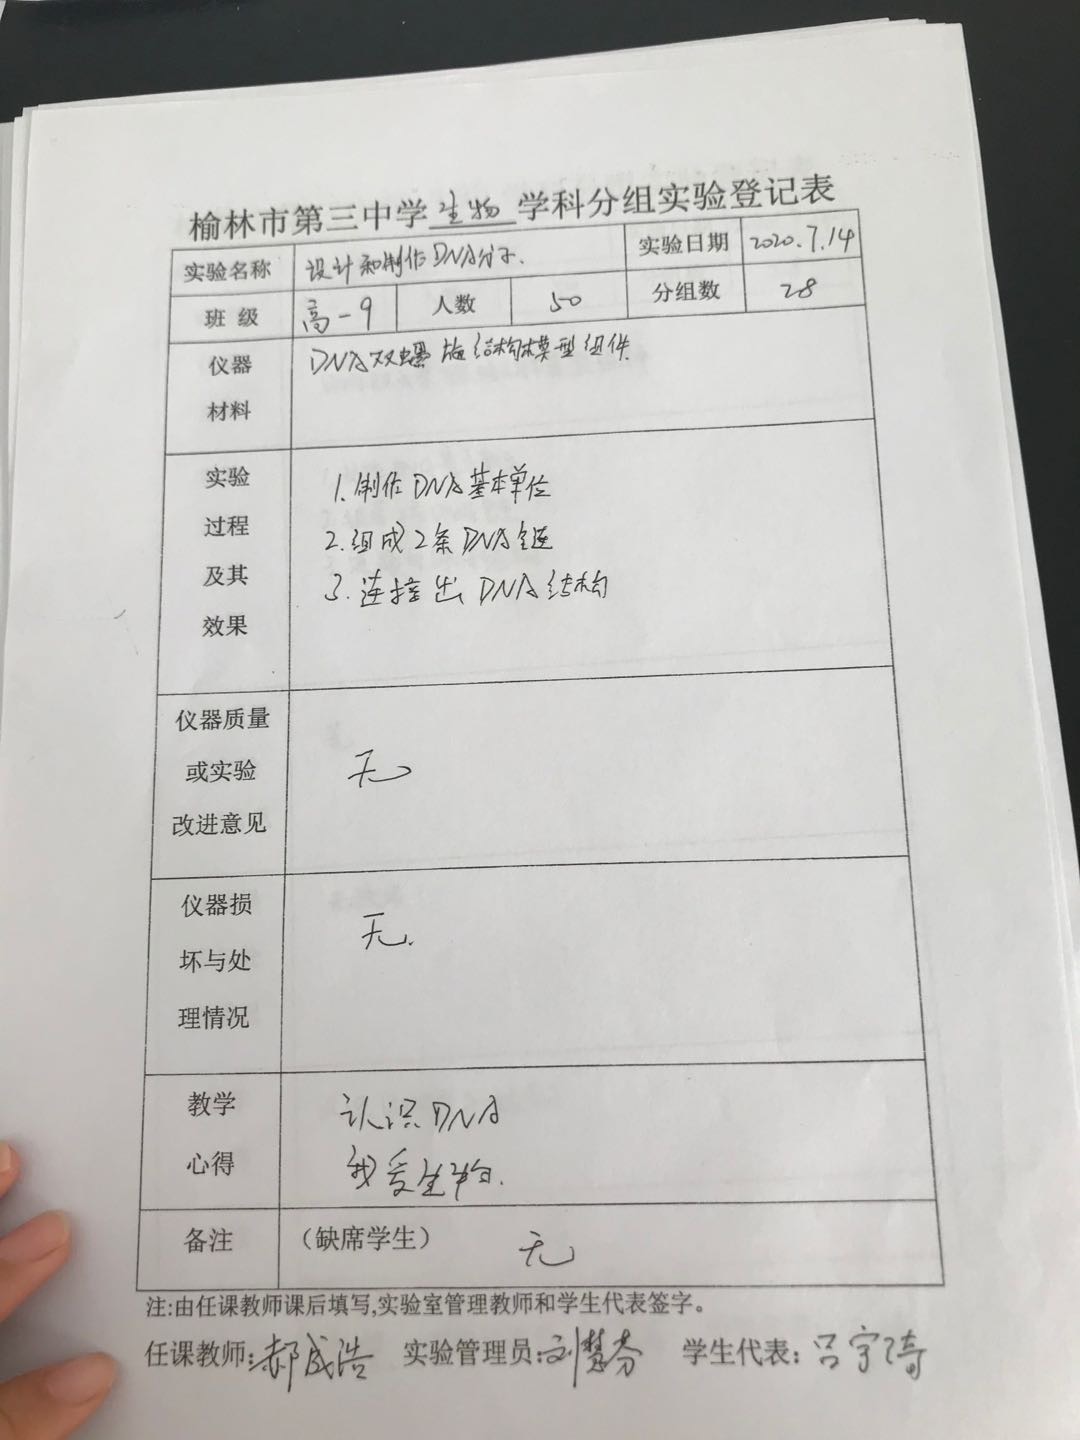 榆林市第三中学生物学科分组实验登记表
实验名称 设计和制作DNA分子. 实验日期 2020.7.14
班级 高一9 人数 50 分组数 28
仪器材料 DNA双螺旋结构模型组件
实验过程及其效果
1.制作DNA基本单位
2.组成2条DNA链
3.连接出DNA结构
仪器质量或实验改进意见 无
仪器损坏与处理情况 无.
教学心得 认识DNA
我爱生物.
备注 (缺席学生) 无
注:由任课教师课后填写,实验室管理教师和学生代表签字。
任课教师:郝成浩 实验管理员:刘慧芬 学生代表:吕宇琦